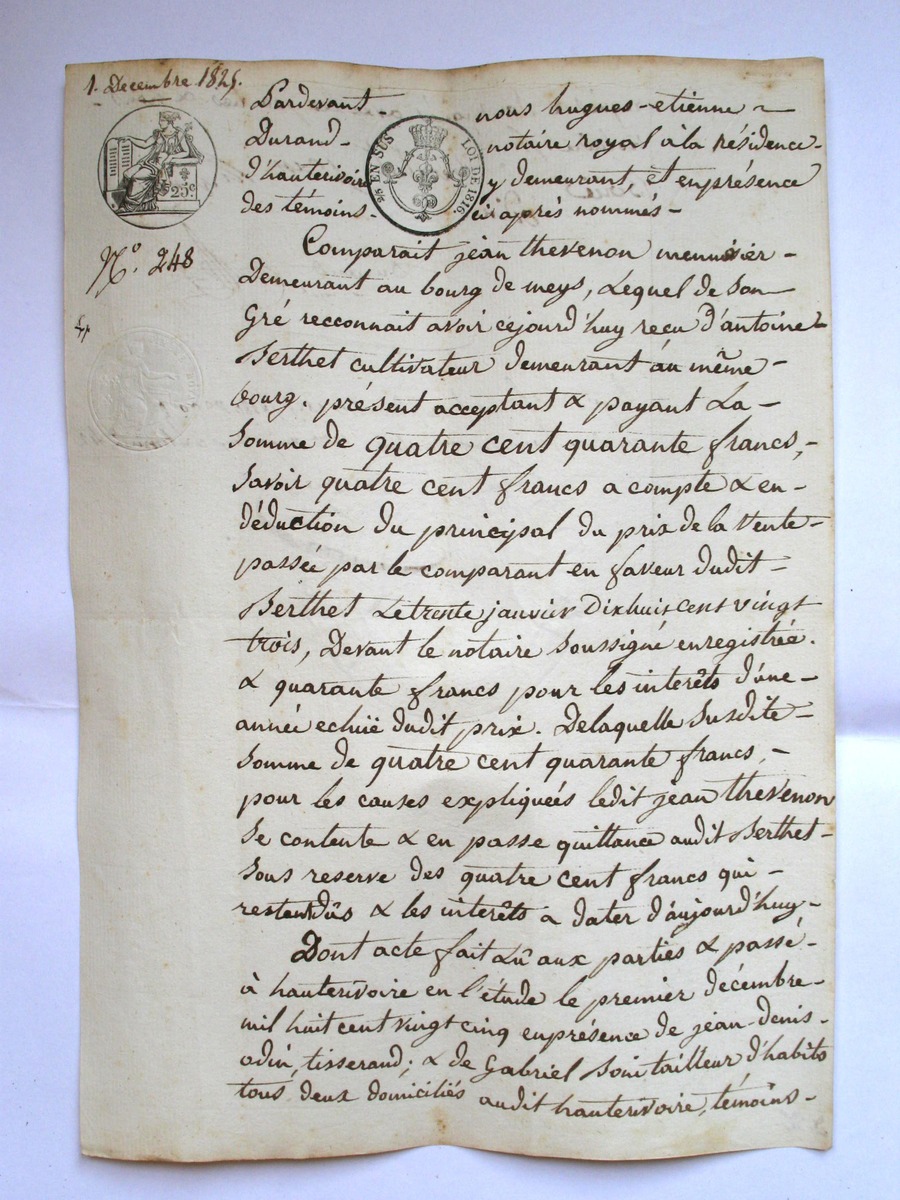 1. Decembre 1825.
Pardevant - nous hugues-etienne -
Durand - notaire royal à la résidence -
d'hauterivoire y demeurant, et en présence
des témoins - ci après nommés -
25 EN SUS LOI DE 1816
25c.
N°. 248
Comparait jean thevenon menuisier -
Demeurant au bourg de meys, Lequel de Son
Gré recconnait avoir cejourd'huy reçu d'antoine
Berthet cultivateur demeurant au même -
bourg. présent acceptant & payant La -
Somme de quatre cent quarante francs, -
Savoir quatre cent francs a compte & en -
déduction du principal du prix de la vente -
passée par le comparant en faveur dudit -
Berthet Le trente janvier Dix huit cent vingt
trois, Devant le notaire Soussigné enregistrée.
& quarante francs pour les interêts d'une -
année echuë dudit prix. De laquelle Susdite -
Somme de quatre cent quarante francs, -
pour les causes expliquées ledit jean thevenon
Se contente & en passe quittance audit Berthet -
Sous reserve des quatre cent francs qui -
restent dûs & les interêts a dater d'aujourd'huy -
Dont acte fait Lû aux parties & passé -
à hauterivoire en l'étude le premier décembre -
mil huit cent vingt cinq en présence de jean-denis -
odin, tisserand; & de Gabriel tailleur d'habits
tous deux domiciliés audit hauterivoire, témoins -